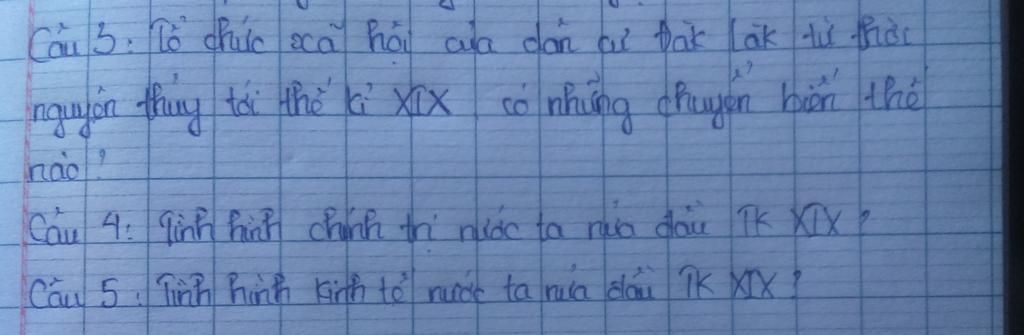 Câu 3: Tổ chức xã hội của dân cư Đắk Lắk từ thời
nguyên thủy tới thế kỉ XIX có những chuyển biến thế
nào?
Câu 4: Tình hình chính trị nước ta nửa đầu TK XIX?
Câu 5: Tình hình kinh tế nước ta nửa đầu TK XIX?